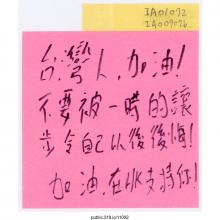 IA01072
IA009076
台灣人,加油!
不要被一時的讓
步令自己以後後悔!
加油,在HK支持你!
public.318.io/11003